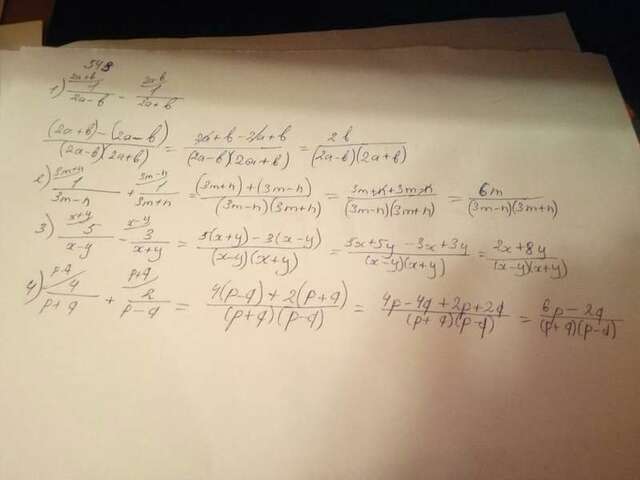 548
1) 2a+b/1/2a-b - 2a-b/1/2a+b =
(2a+b)-(2a-b)/(2a-b)(2a+b) = 2a+b-2a+b/(2a-b)(2a+b) = 2b/(2a-b)(2a+b)
2) 3m+n/1/3m-n + 3m-n/1/3m+n = (3m+n)+(3m-n)/(3m-n)(3m+n) = 3m+n+3m-n/(3m-n)(3m+n) = 6m/(3m-n)(3m+n)
3) x+y/5/x-y - x-y/3/x+y = 5(x+y)-3(x-y)/(x-y)(x+y) = 5x+5y-3x+3y/(x-y)(x+y) = 2x+8y/(x-y)(x+y)
4) p-q/4/p+q + p+q/2/p-q = 4(p-q)+2(p+q)/(p+q)(p-q) = 4p-4q+2p+2q/(p+q)(p-q) = 6p-2q/(p+q)(p-q)